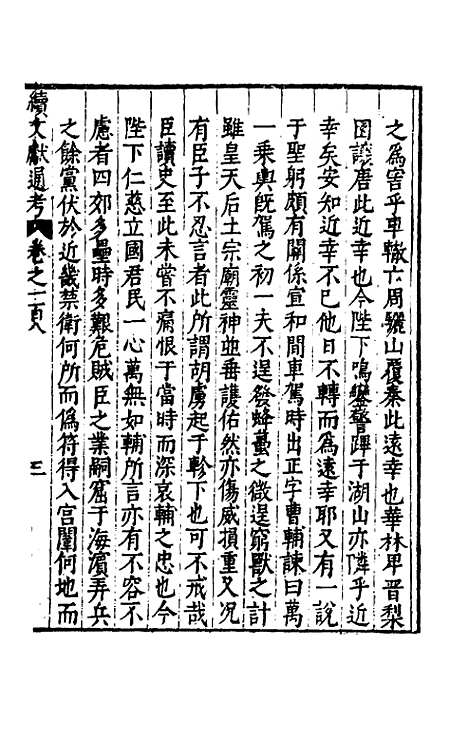 之爲害乎車轍六周驪山覆秦此遠幸也華林畢晋梨
園議唐此近幸也今陛下鳴鑾警蹕于湖山亦隣乎近
幸矣安知近幸不已他日不轉而爲遠幸耶又有一說
于聖躬頗有關係宣和間車駕時出正字曹輔諫曰萬
一乘輿旣駕之初一夫不逞發蜂蠆之微逞窮獸之計
雖皇天后土宗廟靈神並垂護佑然亦傷威損重又况
有臣子不忍言者此所謂胡虜起于軫下也可不戒哉
臣讀史至此未嘗不痛恨于當時而深哀輔之忠也今
陛下仁慈立國君民一心萬無如輔所言亦有不容不
慮者四郊多壘時多艱危賊臣之業嗣窟于海濱弄兵
之餘黨伏於近畿禁衛何所而僞符得入宫闈何地而
續文獻通考 卷之一百八 三